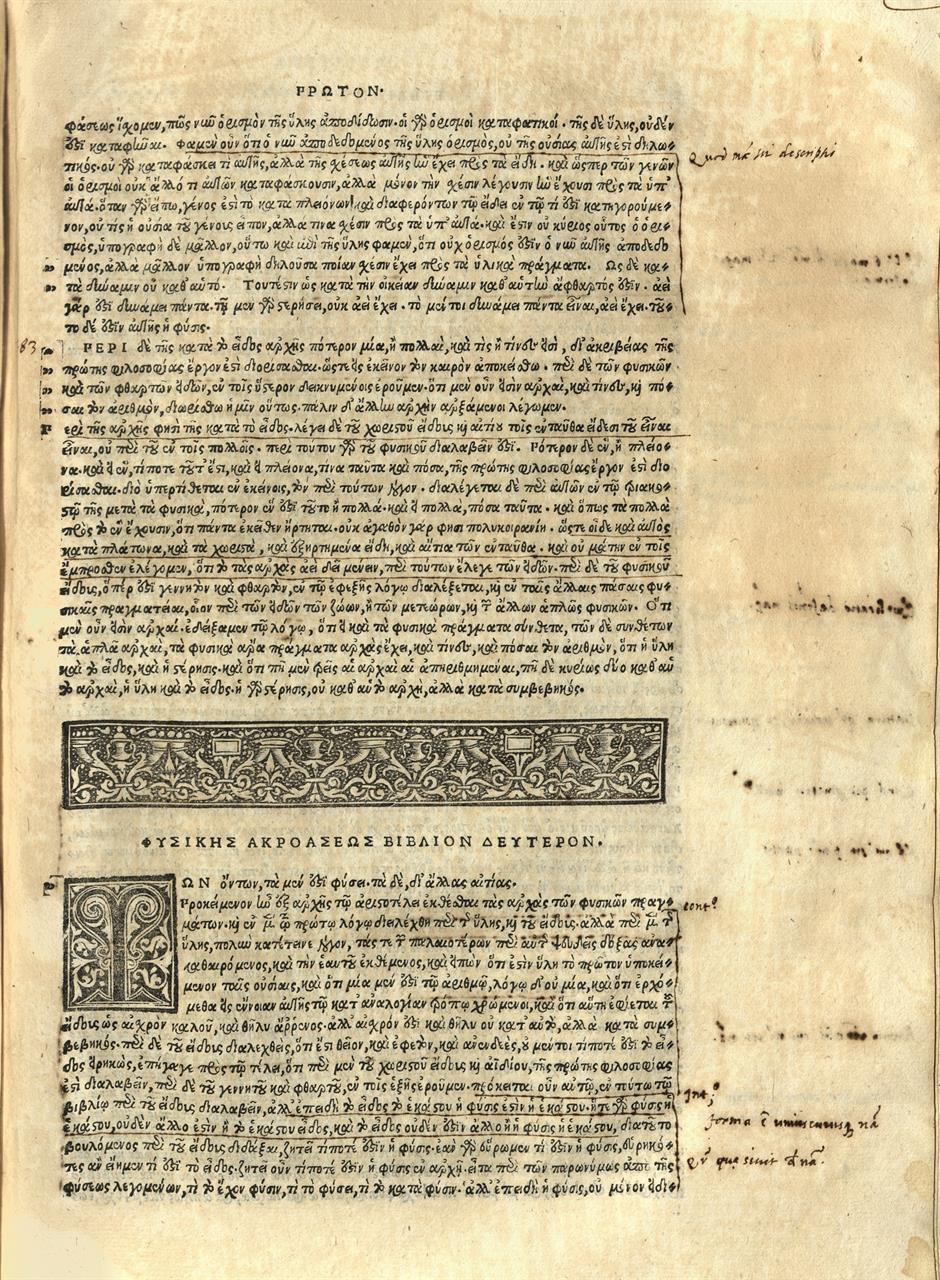 ΠΡΩΤΟΝ.
φάσεως ἴσχομεν, πῶς νῦν ὁρισμὸν τῆς ὕλης ἀποδίδωσιν. οἱ γὰρ ὁρισμοὶ καταφατικοί. τῆς δὲ ὕλης, οὐδὲν
ἐστὶ κατάφασις. φαμὲν οὖν ὅτι ὁ νῦν ἀποδεδομένος τῆς ὕλης ὁρισμός, οὐ τῆς οὐσίας αὐτῆς ἐστὶ δηλω-
τικός. οὐ γὰρ καταφάσκει τὶ αὐτῆς, ἀλλὰ τῆς σχέσεως αὐτῆς ἣν ἔχει πρὸς τὰ εἴδη. καὶ ὥσπερ τῶν γενῶν
οἱ ὁρισμοὶ οὐκ ἄλλό τι αὐτῶν καταφάσκουσιν, ἀλλὰ μόνον τὴν σχέσιν λέγουσιν ἣν ἔχουσι πρὸς τὰ ὑπ'
αὐτά. ὅταν γὰρ εἴπω, γένος ἐστὶ τὸ κατὰ πλειόνων καὶ διαφερόντων τῷ εἴδει ἐν τῷ τί ἐστι κατηγορούμε-
νον, οὐ τίς ἡ οὐσία τοῦ γένους εἶπον, ἀλλά τινα σχέσιν πρὸς τὰ ὑπ' αὐτά. καὶ ἔστιν οὐ κύριος οὗτος ὁ ὁρι-
σμός, ὑπογραφὴ δὲ μᾶλλον, οὕτω καὶ ἐπὶ τῆς ὕλης φαμὲν, ὅτι οὐχ ὁρισμός ἐστιν ὁ νῦν αὐτῆς ἀποδεδο-
μένος, ἀλλὰ μᾶλλον ὑπογραφὴ δηλοῦσα ποίαν σχέσιν ἔχει πρὸς τὰ ὑλικὰ πράγματα. Ὡς δὲ κα-
τὰ δύναμιν οὐ καθ' αὑτό. Τουτέστιν ὡς κατὰ τὴν οἰκείαν δύναμιν καθ' αὑτὴν ἄφθαρτός ἐστιν. ἀεὶ
γάρ ἐστι δυνάμει πάντα. τῇ μὲν γὰρ στερήσει, οὐκ ἀεὶ ἔχει. τὸ μέντοι δυνάμει πάντα εἶναι, ἀεὶ ἔχει. τοῦ-
το δέ ἐστιν αὐτῆς ἡ φύσις.
83 ΠΕΡΙ δὲ τῆς κατὰ τὸ εἶδος ἀρχῆς πότερον μία, ἢ πολλαί, καὶ τίς ἢ τίνές εἰσι, δι' ἀκριβείας τῆς
πρώτης φιλοσοφίας ἔργον ἐστὶ διορίσασθαι. ὥστε εἰς ἐκεῖνον τὸν καιρὸν ἀποκείσθω. περὶ δὲ τῶν φυσικῶν
καὶ τῶν φθαρτῶν εἰδῶν, ἐν τοῖς ὕστερον δεικνυμένοις ἐροῦμεν. ὅτι μὲν οὖν εἰσὶν ἀρχαί, καὶ τίνες, καὶ πό-
σαι τὸν ἀριθμὸν, διωρίσθω ἡμῖν οὕτως. πάλιν δ' ἄλλην ἀρχὴν ἀρξάμενοι λέγωμεν.
Περὶ τῆς ἀρχῆς φησὶ τῆς κατὰ τὸ εἶδος. λέγει δὲ τοῦ χωριστοῦ εἴδους καὶ αἰτίου τοῖς ἐνταῦθα εἴδεσι τοῦ εἶναι
εἶναι, οὐ περὶ τοῦ ἐν τοῖς πολλοῖς. περὶ τούτου γὰρ τοῦ φυσικοῦ διαλαβεῖν ἐστι. Πότερον δὲ ἕν, ἢ πλείο-
να. καὶ εἰ ἕν, τί ποτε τοῦτ' ἔστι, καὶ εἰ πλείονα, τίνα ταῦτα καὶ πόσα, τῆς πρώτης φιλοσοφίας ἔργον ἐστὶ διο-
ρίσασθαι. διὸ ὑπερτίθεται ἐν ἐκείνοις, τὸν περὶ τούτων λόγον. διαλέγεται δὲ περὶ αὐτῶν ἐν τῷ
τῆς μετὰ τὰ φυσικά, πότερον ἕν ἐστι τοῦτο ἢ πολλά. καὶ εἰ πολλά, πόσα ταῦτα. καὶ ὅπως τὰ πολλὰ
πρὸς τὸ ἓν ἔχουσιν, ὅτι πάντα ἐκεῖθεν ἤρτηται. οὐκ ἀγαθὸν γάρ φησι πολυκοιρανίη. ὥστε οἶδε καὶ αὐτὸς
κατὰ πλάτωνα, καὶ τὰ χωριστὰ, καὶ ἐξῃρημένα εἴδη, καὶ αἴτια τῶν ἐνταῦθα. καὶ οὐ μάτην ἐν τοῖς
ἔμπροσθεν ἐλέγομεν, ὅτι τὸ τὰς ἀρχὰς ἀεὶ δεῖ μένειν, περὶ τούτων ἔλεγε τῶν εἰδῶν. περὶ δὲ τοῦ φυσικοῦ
εἴδους, ὅπερ ἐστὶ γεννητὸν καὶ φθαρτὸν, ἐν τῷ ἐφεξῆς λόγῳ διαλέξεται, καὶ ἐν ταῖς ἄλλαις πάσαις φυ-
σικαῖς πραγματείαις, οἷον περὶ τῶν εἰδῶν τῶν ζῴων, ἢ τῶν μετεώρων, καὶ τῶν ἄλλων ἁπλῶς φυσικῶν. Ὅτι
μὲν οὖν εἰσὶν ἀρχαὶ. ἐδείξαμεν τῷ λόγῳ, ὅτι εἰ τὰ φυσικὰ πράγματα σύνθετα, τῶν δὲ συνθέτων
τὰ ἁπλᾶ ἀρχαί, τὰ φυσικὰ ἄρα πράγματα ἀρχὰς ἔχει, καὶ τίνες, καὶ πόσαι τὸν ἀριθμὸν, ὅτι ἡ ὕλη
καὶ τὸ εἶδος, καὶ ἡ στέρησις. καὶ ὅτι πῇ μὲν τρεῖς αἱ ἀρχαὶ αἱ ἀπηριθμημέναι, πῇ δὲ κυρίως δύο καθ' αὑ
τὸ ἀρχαί, ἡ ὕλη καὶ τὸ εἶδος. ἡ γὰρ στέρησις, οὐ καθ' αὑτὸ ἀρχή, ἀλλὰ κατὰ συμβεβηκός.
ΦΥΣΙΚΗΣ ΑΚΡΟΑΣΕΩΣ ΒΙΒΛΙΟΝ ΔΕΥΤΕΡΟΝ.
ΤΩΝ ὄντων, τὰ μέν ἐστι φύσει. τὰ δὲ, δι' ἄλλας αἰτίας.
Προκείμενον ἦν ἐξ ἀρχῆς τῷ ἀριστοτέλει ἐκθέσθαι τὰς ἀρχὰς τῶν φυσικῶν πραγ-
μάτων. καὶ ἐν μὲν τῷ πρώτῳ λόγῳ διελέχθη περὶ τῆς ὕλης, καὶ τοῦ εἴδους. ἀλλὰ περὶ μὲν τῆς
ὕλης, πολὺν κατέτεινε λόγον, τάς τε τῶν παλαιοτέρων περὶ αὐτῆς ψευδεῖς δόξας ἀνα-
καθαιρόμενος, καὶ τὴν ἑαυτοῦ ἐκθέμενος, καὶ εἰπὼν ὅτι ἐστὶν ὕλη τὸ πρῶτον ὑποκεί-
μενον ταῖς οὐσίαις, καὶ ὅτι μία μέν ἐστι τῷ ἀριθμῷ, λόγῳ δ' οὐ μία, καὶ ὅτι ἐρχό-
μεθα εἰς ἔννοιαν αὐτῆς τῷ κατ' ἀναλογίαν τρόπῳ χρώμενοι, καὶ ὅτι αὕτη ἐφίεται τοῦ
εἴδους, ὡς αἰσχρὸν καλοῦ, καὶ θῆλυ ἄῤῥενος. ἀλλ' αἰσχρόν ἐστι καὶ θῆλυ οὐ κατ' αὐτὸ, ἀλλὰ κατὰ συμ-
βεβηκός. περὶ δὲ τοῦ εἴδους διαλεχθείς, ὅτι ἔστι θεῖον, καὶ ἐφετὸν, καὶ ἀνενδεές, οὐ μέντοι τί ποτέ ἐστι τὸ εἶ-
δος εἰρηκώς, ἐπήγαγε πρὸς τῷ τέλει, ὅτι περὶ μὲν τοῦ χωριστοῦ εἴδους καὶ ἀϊδίου, τῆς πρώτης φιλοσοφίας
ἐστὶ διαλαβεῖν, περὶ δὲ τοῦ γεννητοῦ καὶ φθαρτοῦ, ἐν τοῖς ἑξῆς ἐροῦμεν. πρόκειται οὖν αὐτῷ, ἐν τούτῳ τῷ
βιβλίῳ περὶ τοῦ εἴδους διαλαβεῖν, ἀλλ' ἐπειδὴ τὸ εἶδος τὸ ἑκάστου ἡ φύσις ἐστὶν ἡ ἑκάστου. ἥτε γὰρ φύσις ἡ
ἑκάστου, οὐδὲν ἄλλο ἐστὶν ἢ τὸ ἑκάστου εἶδος, καὶ τὸ εἶδος οὐδέν ἐστιν ἄλλο ἢ ἡ φύσις ἡ ἑκάστου, διὰ τοῦτο
βουλόμενος περὶ τοῦ εἴδους διδάξαι, ζητεῖ τί ποτέ ἐστιν ἡ φύσις. ἐὰν γὰρ εὕρωμεν τί ἐστιν ἡ φύσις, εὑρηκό-
τες ἂν εἴημεν τί ἐστι τὸ εἶδος. ζητεῖ οὖν τί ποτέ ἐστιν ἡ φύσις ἐν ἀρχῇ. εἶτα περὶ τῶν παρωνύμως ἀπὸ τῆς
φύσεως λεγομένων, τί τὸ ἔχον φύσιν, τί τὸ φύσει, τί τὸ κατὰ φύσιν. ἀλλ' ἐπειδὴ ἡ φύσις, οὐ μόνον εἶδι-
cont.
forma ē uniuscuiusq. nā